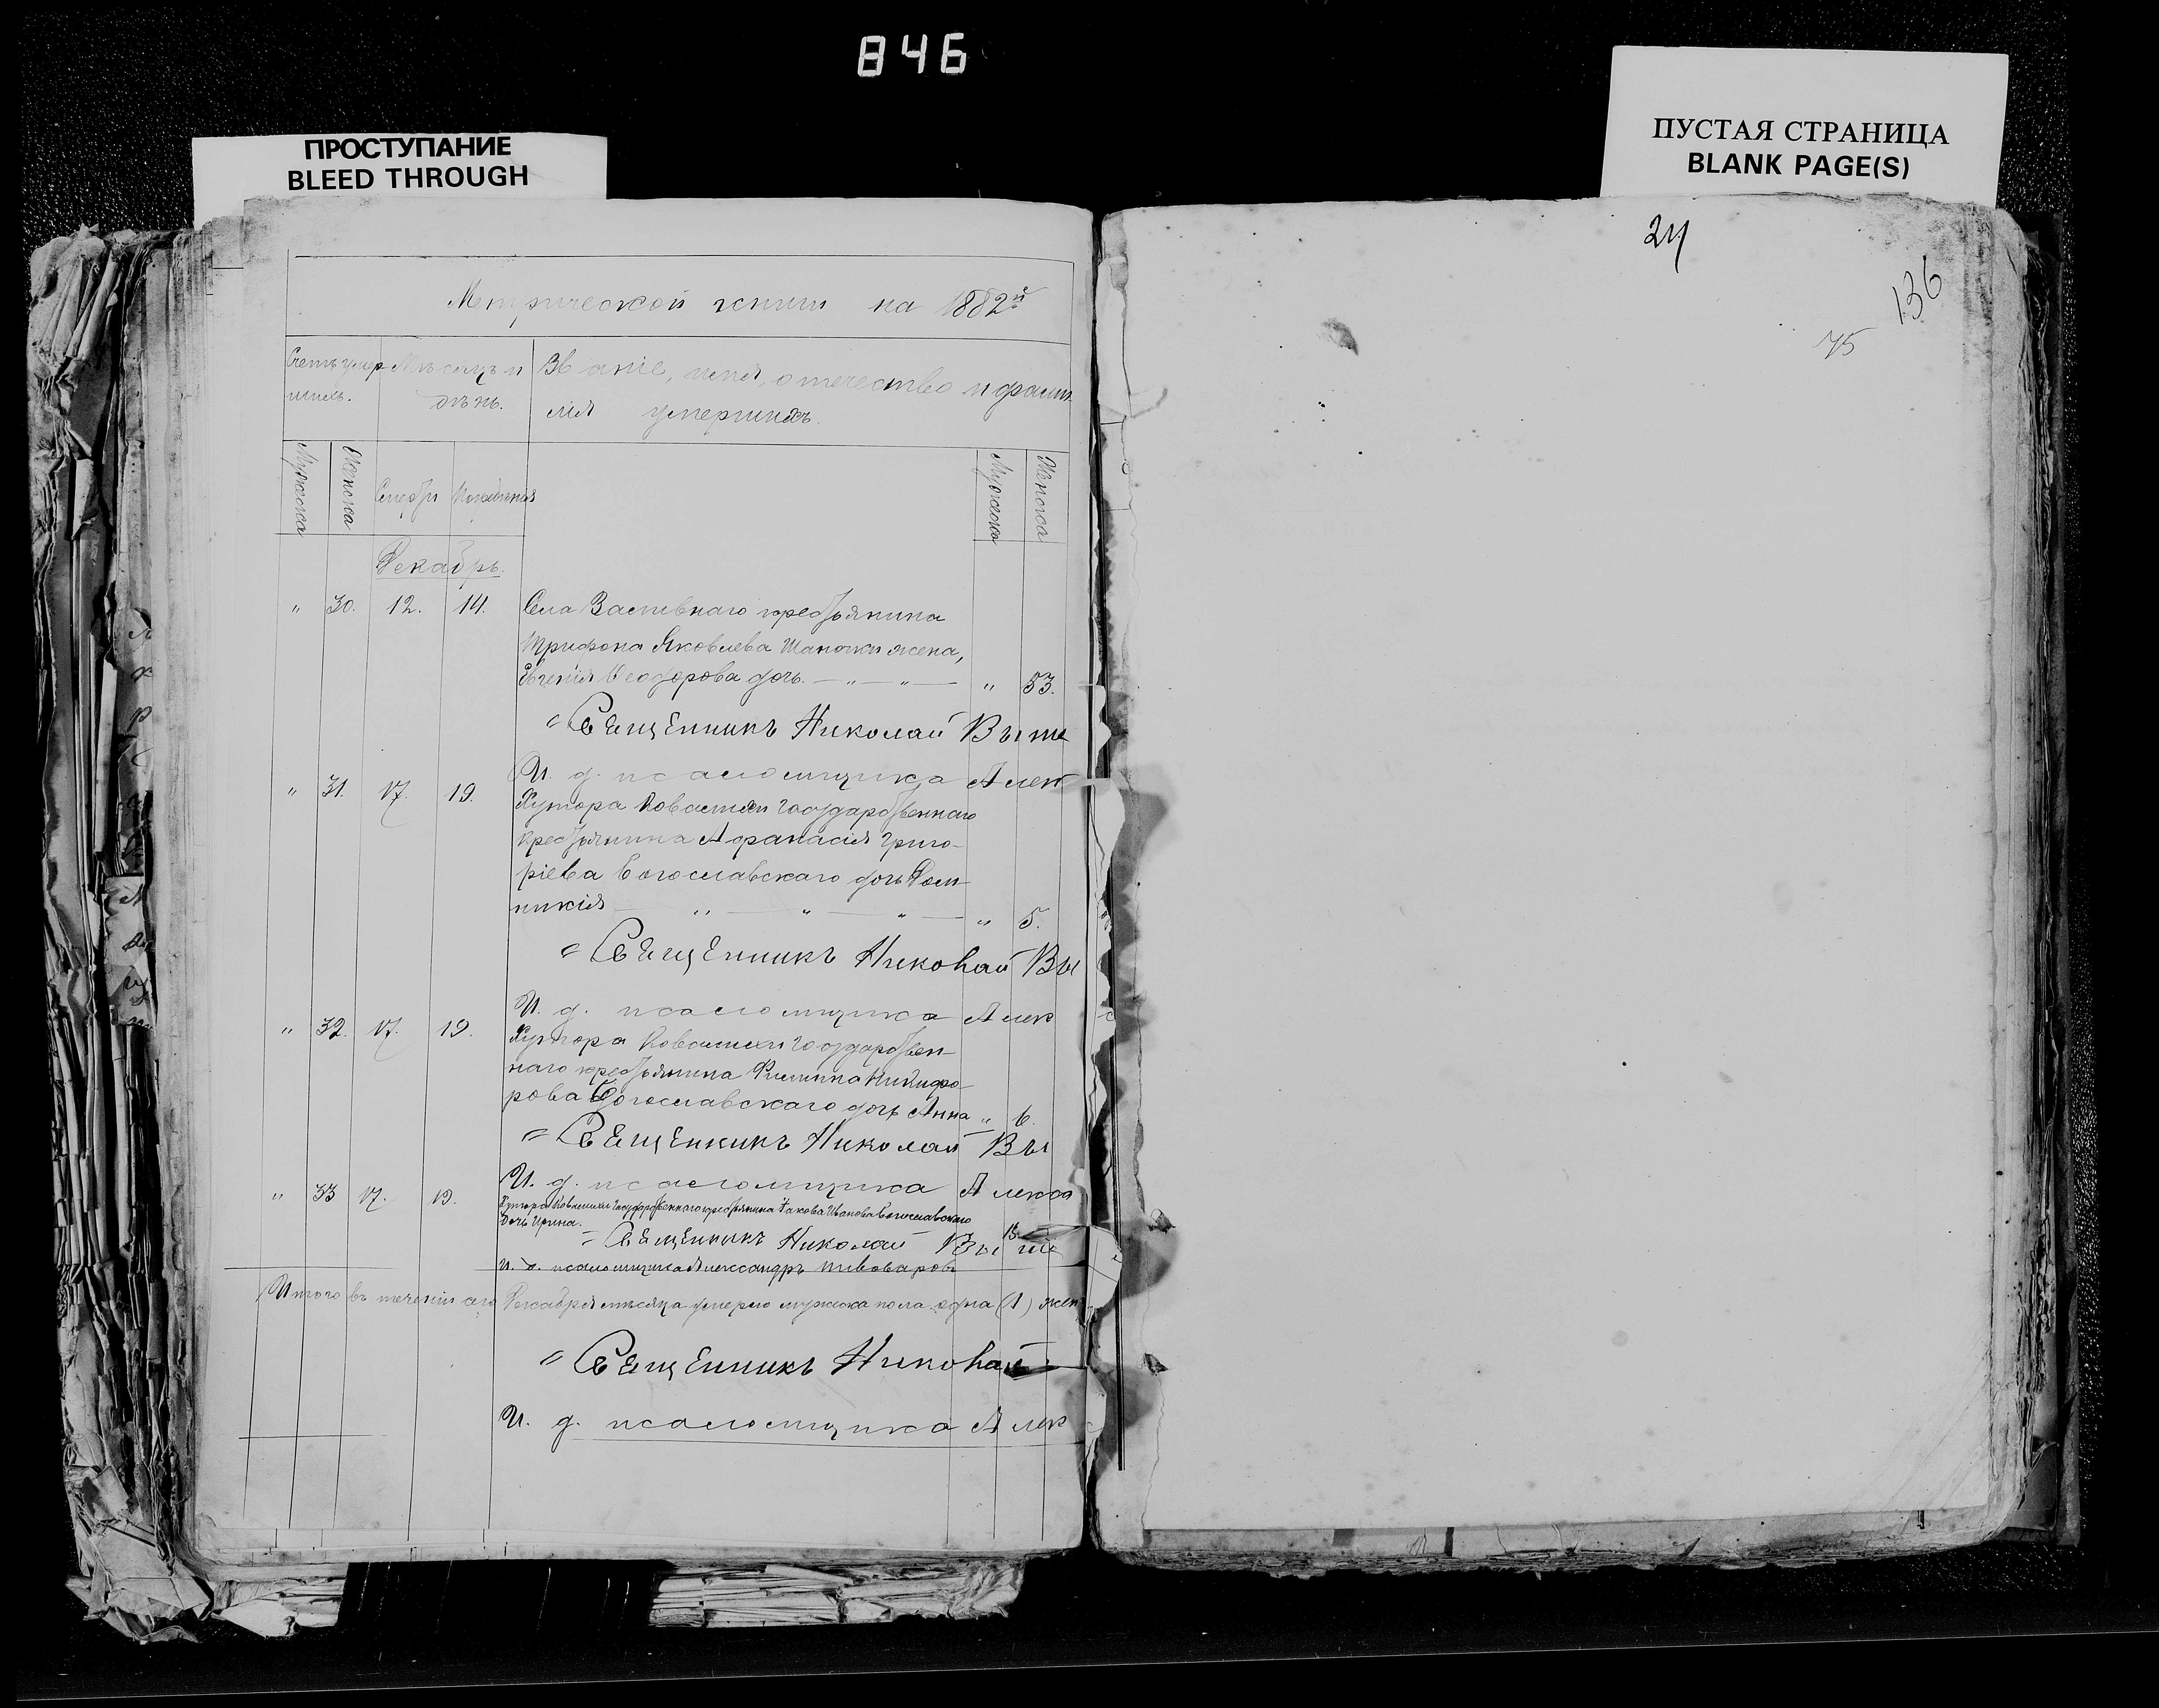 846
ПРОСТУПАНИЕ
BLEED THROUGH
ПУСТАЯ СТРАНИЦА
BLANK PAGE(S)
Метрической книги на 1882й
Счетъ умер Мѣсяцъ и Званіе, имя, отечество и фами
шихъ. день. лія умершихъ.
Мужска Женска Смерти Погребенія Мужска Женска
Декабрь.
" 30. 12. 14. Села крестьянина
Трифона Яковлева жена,
Евгенія Ѳеодорова дочь. — " — " — " 53.
Священникъ Николай Выше
И. д. псаломщика Алек
" 31. 17. 19. Хутора государственнаго
крестьянина Афанасія Григо-
ріева Богославскаго дочь Дом-
никія — " — " — " — " 5.
Священникъ Николай Вы
И. д. псаломщика Алек
" 32. 17. 19. Хутора государствен-
наго крестьянина Филиппа Никифо-
рова Богославскаго дочь Анна " 6.
Священникъ Николай Вы
И. д. псаломщика Алекса
" 33 17. 19. Хутора государственнаго крестьянина Іакова Иванова Богославскаго
дочь Ирина.
Священникъ Николай Выше
И. д. псаломщика Александръ Пивоваровъ
Итого въ теченіи сего Декабря мѣсяца умерло мужска пола одна (1) жен
Священникъ Николай
И. д. псаломщика Алек
24
136
75